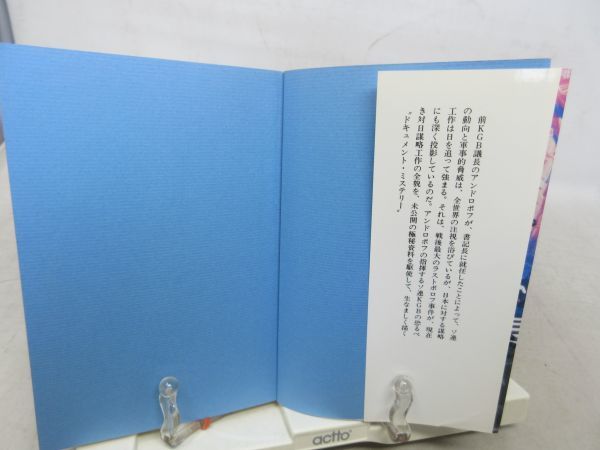 前KGB議長のアンドロポフが、書記長に就任したことによって、ソ連
の動向と軍事的脅威は、全世界の注視を浴びているが、日本に対する謀略
工作は日を追って強まる。それは、戦後最大のラストボロフ事件が、現在
にも深く投影しているのだ。アンドロポフの指揮するソ連KGBの恐るべ
き対日謀略工作の全貌を、未公開の極秘資料を駆使して、生なましく描く
〝ドキュメント・ミステリー〟
actto